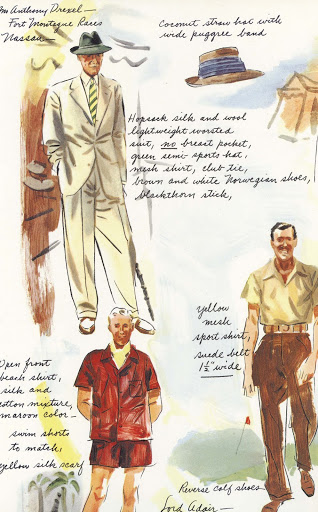 Anthony Drexel —
Fort Montague Races
Nassau —
Coconut straw hat with
wide puggree band
Hopsack silk and wool
lightweight worsted
suit, no breast pocket,
green semi-sports hat,
mesh shirt, club tie,
brown and white Norwegian shoes,
blackthorn stick,
yellow
mesh
sport shirt,
suede belt
1½" wide
Open front
beach shirt,
silk and
cotton mixture,
maroon color —
swim shorts
to match,
yellow silk scarf
Reverse calf shoes
Lord Adair —